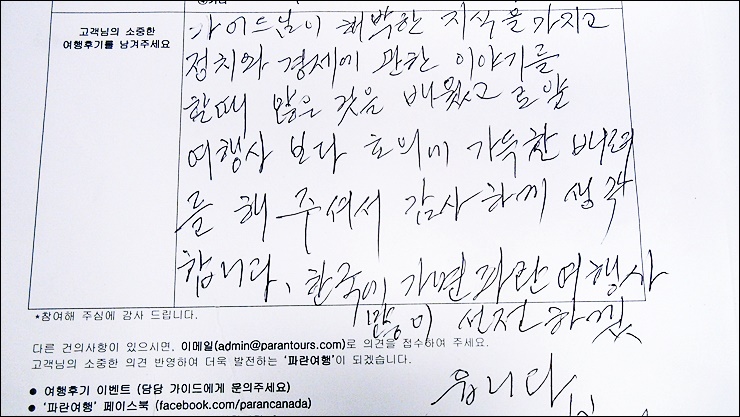 고객님의 소중한
여행후기를 남겨주세요
가이드님이 해박한 지식을 가지고
정치와 경제에 관한 이야기를
할때 많은 것을 배웠고 로얄
여행사 보다 호의에 가득찬 배려
를 해 주셔서 감사하게 생각
합니다. 한국에 가면 파란여행사
많이 선전하겠
읍니다
*참여해 주심에 감사 드립니다.
다른 건의사항이 있으시면, 이메일(admin@parantours.com)로 의견을 접수하여 주세요.
고객님의 소중한 의견 반영하여 더욱 발전하는 '파란여행'이 되겠습니다.
● 여행후기 이벤트 (담당 가이드에게 문의주세요)
● '파란여행' 페이스북 (facebook.com/parancanada)